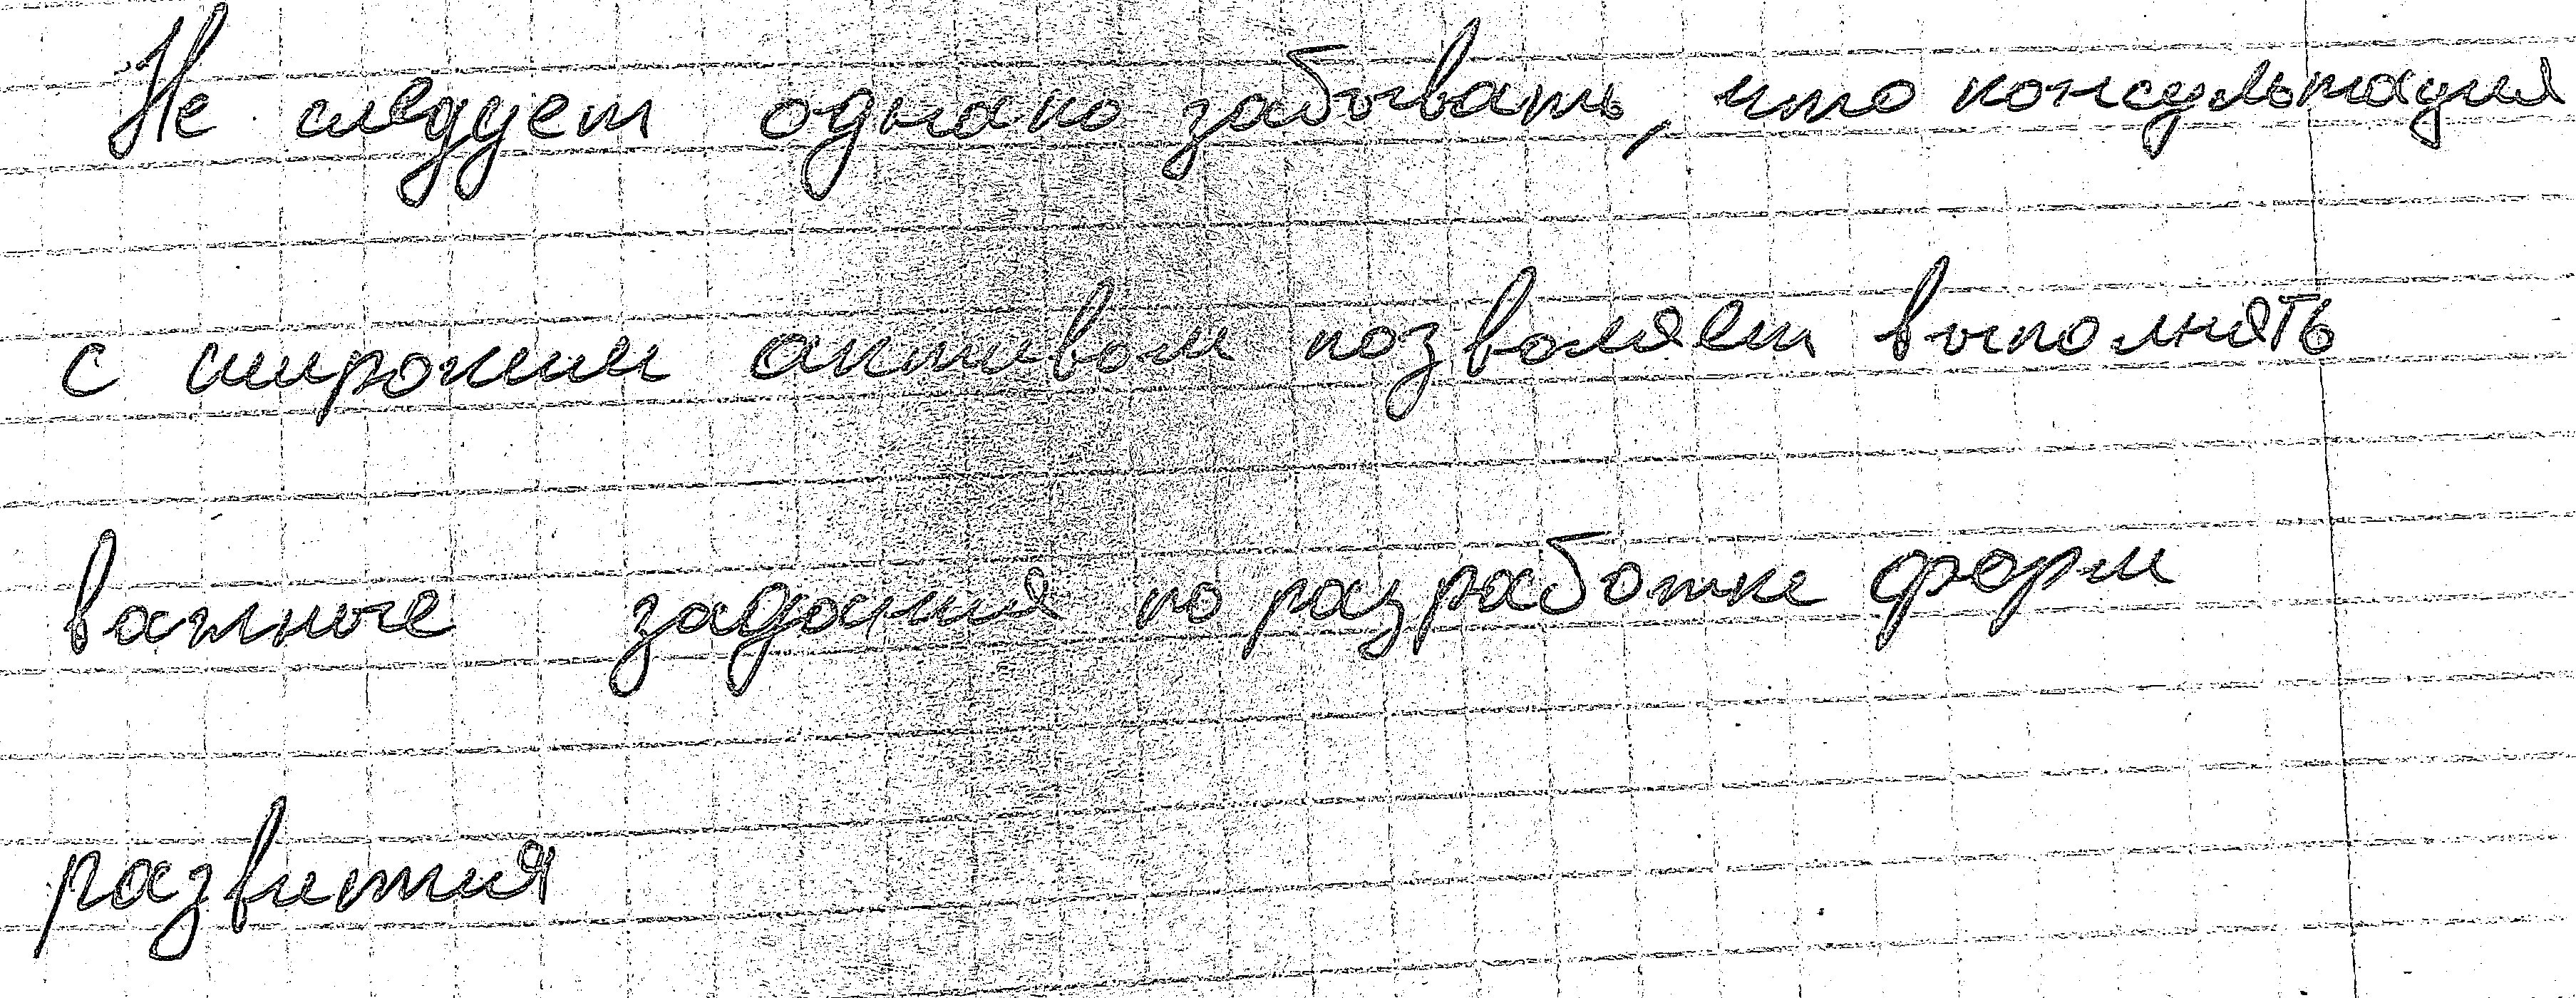 Не следует однако забывать, что консультация
с широким активом позволяет выполнять
важные задания по разработке форм
развития